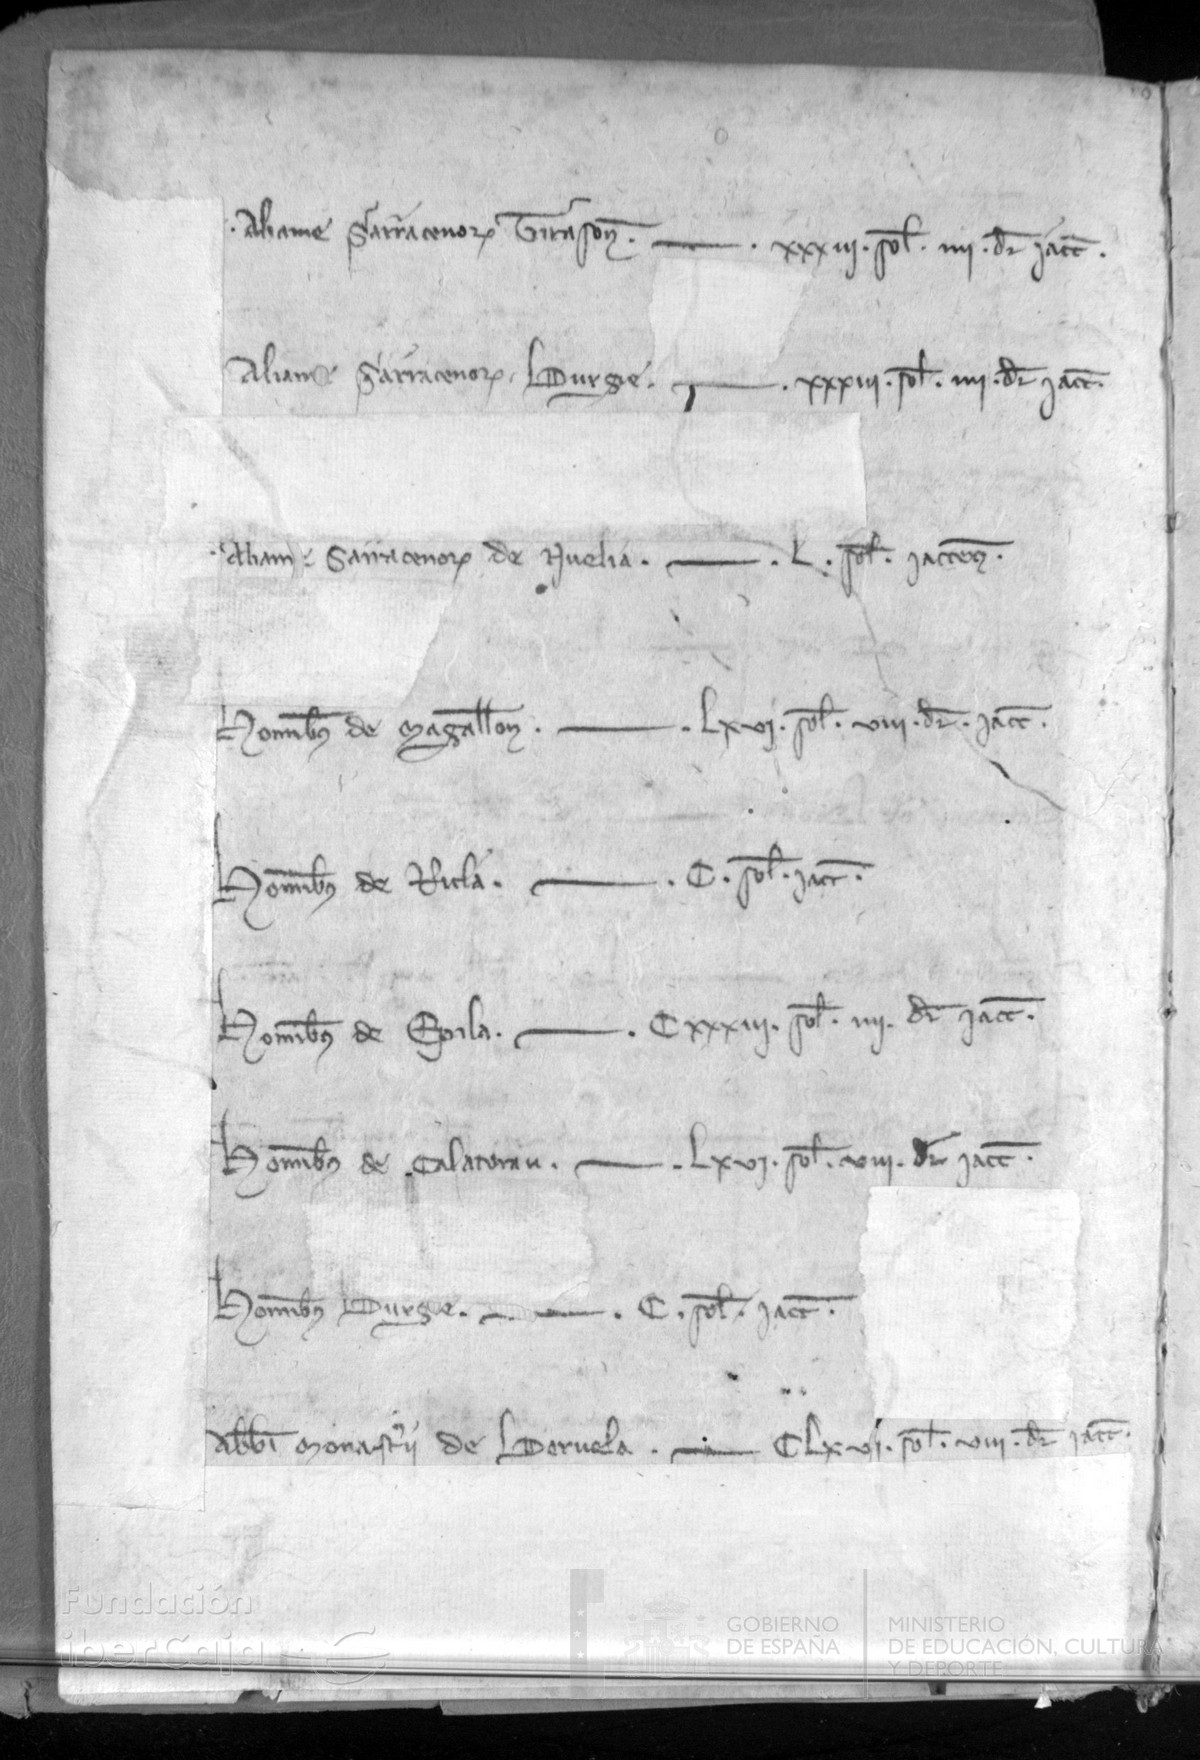 Aliame Sarracenorum Tirasone. — . xxxiii. sol. iiii. dr. jacc.
Aliame Sarracenorum Durgie. — . xxxiii. sol. iiii. dr. jacc.
Aliame Sarracenorum de Nuella. — . L. sol. jaccen.
Hominibus de Magallon. — . Lxvi. sol. viii. dr. jacc.
Hominibus de Ricla. — . C. sol. jacc.
Hominibus de Epila. — . Cxxxiii. sol. iiii. dr. jacc.
Hominibus de Calatorau. — . Lxvi. sol. viii. dr. jacc.
Hominibus Durgie. — . C. sol. jacc.
Abbi monasterii de Beruela. — CLxvi. sol. viii. dr. jacc.
Fundación
iberCaja
GOBIERNO
DE ESPAÑA
MINISTERIO
DE EDUCACIÓN, CULTURA
Y DEPORTE